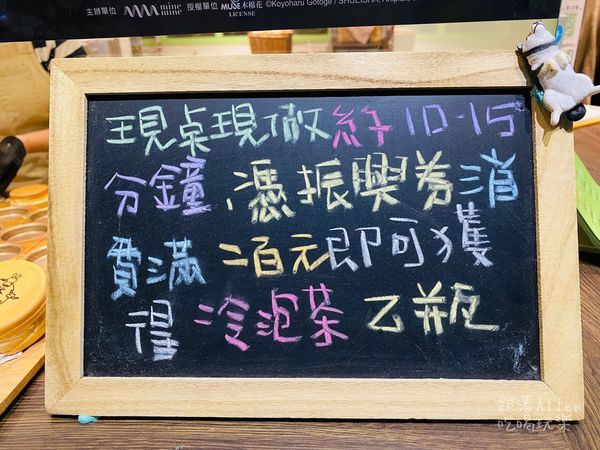 主辦單位 mine mine 授權單位 MUSE 木棉花 LICENSE ©Koyoharu Gotoge / SHUEISHA, Aniplex,
現桌現做約10-15
分鐘,憑振興券消
費滿二百元即可獲
得冷泡茶乙瓶
跟著Allen
吃喝玩樂